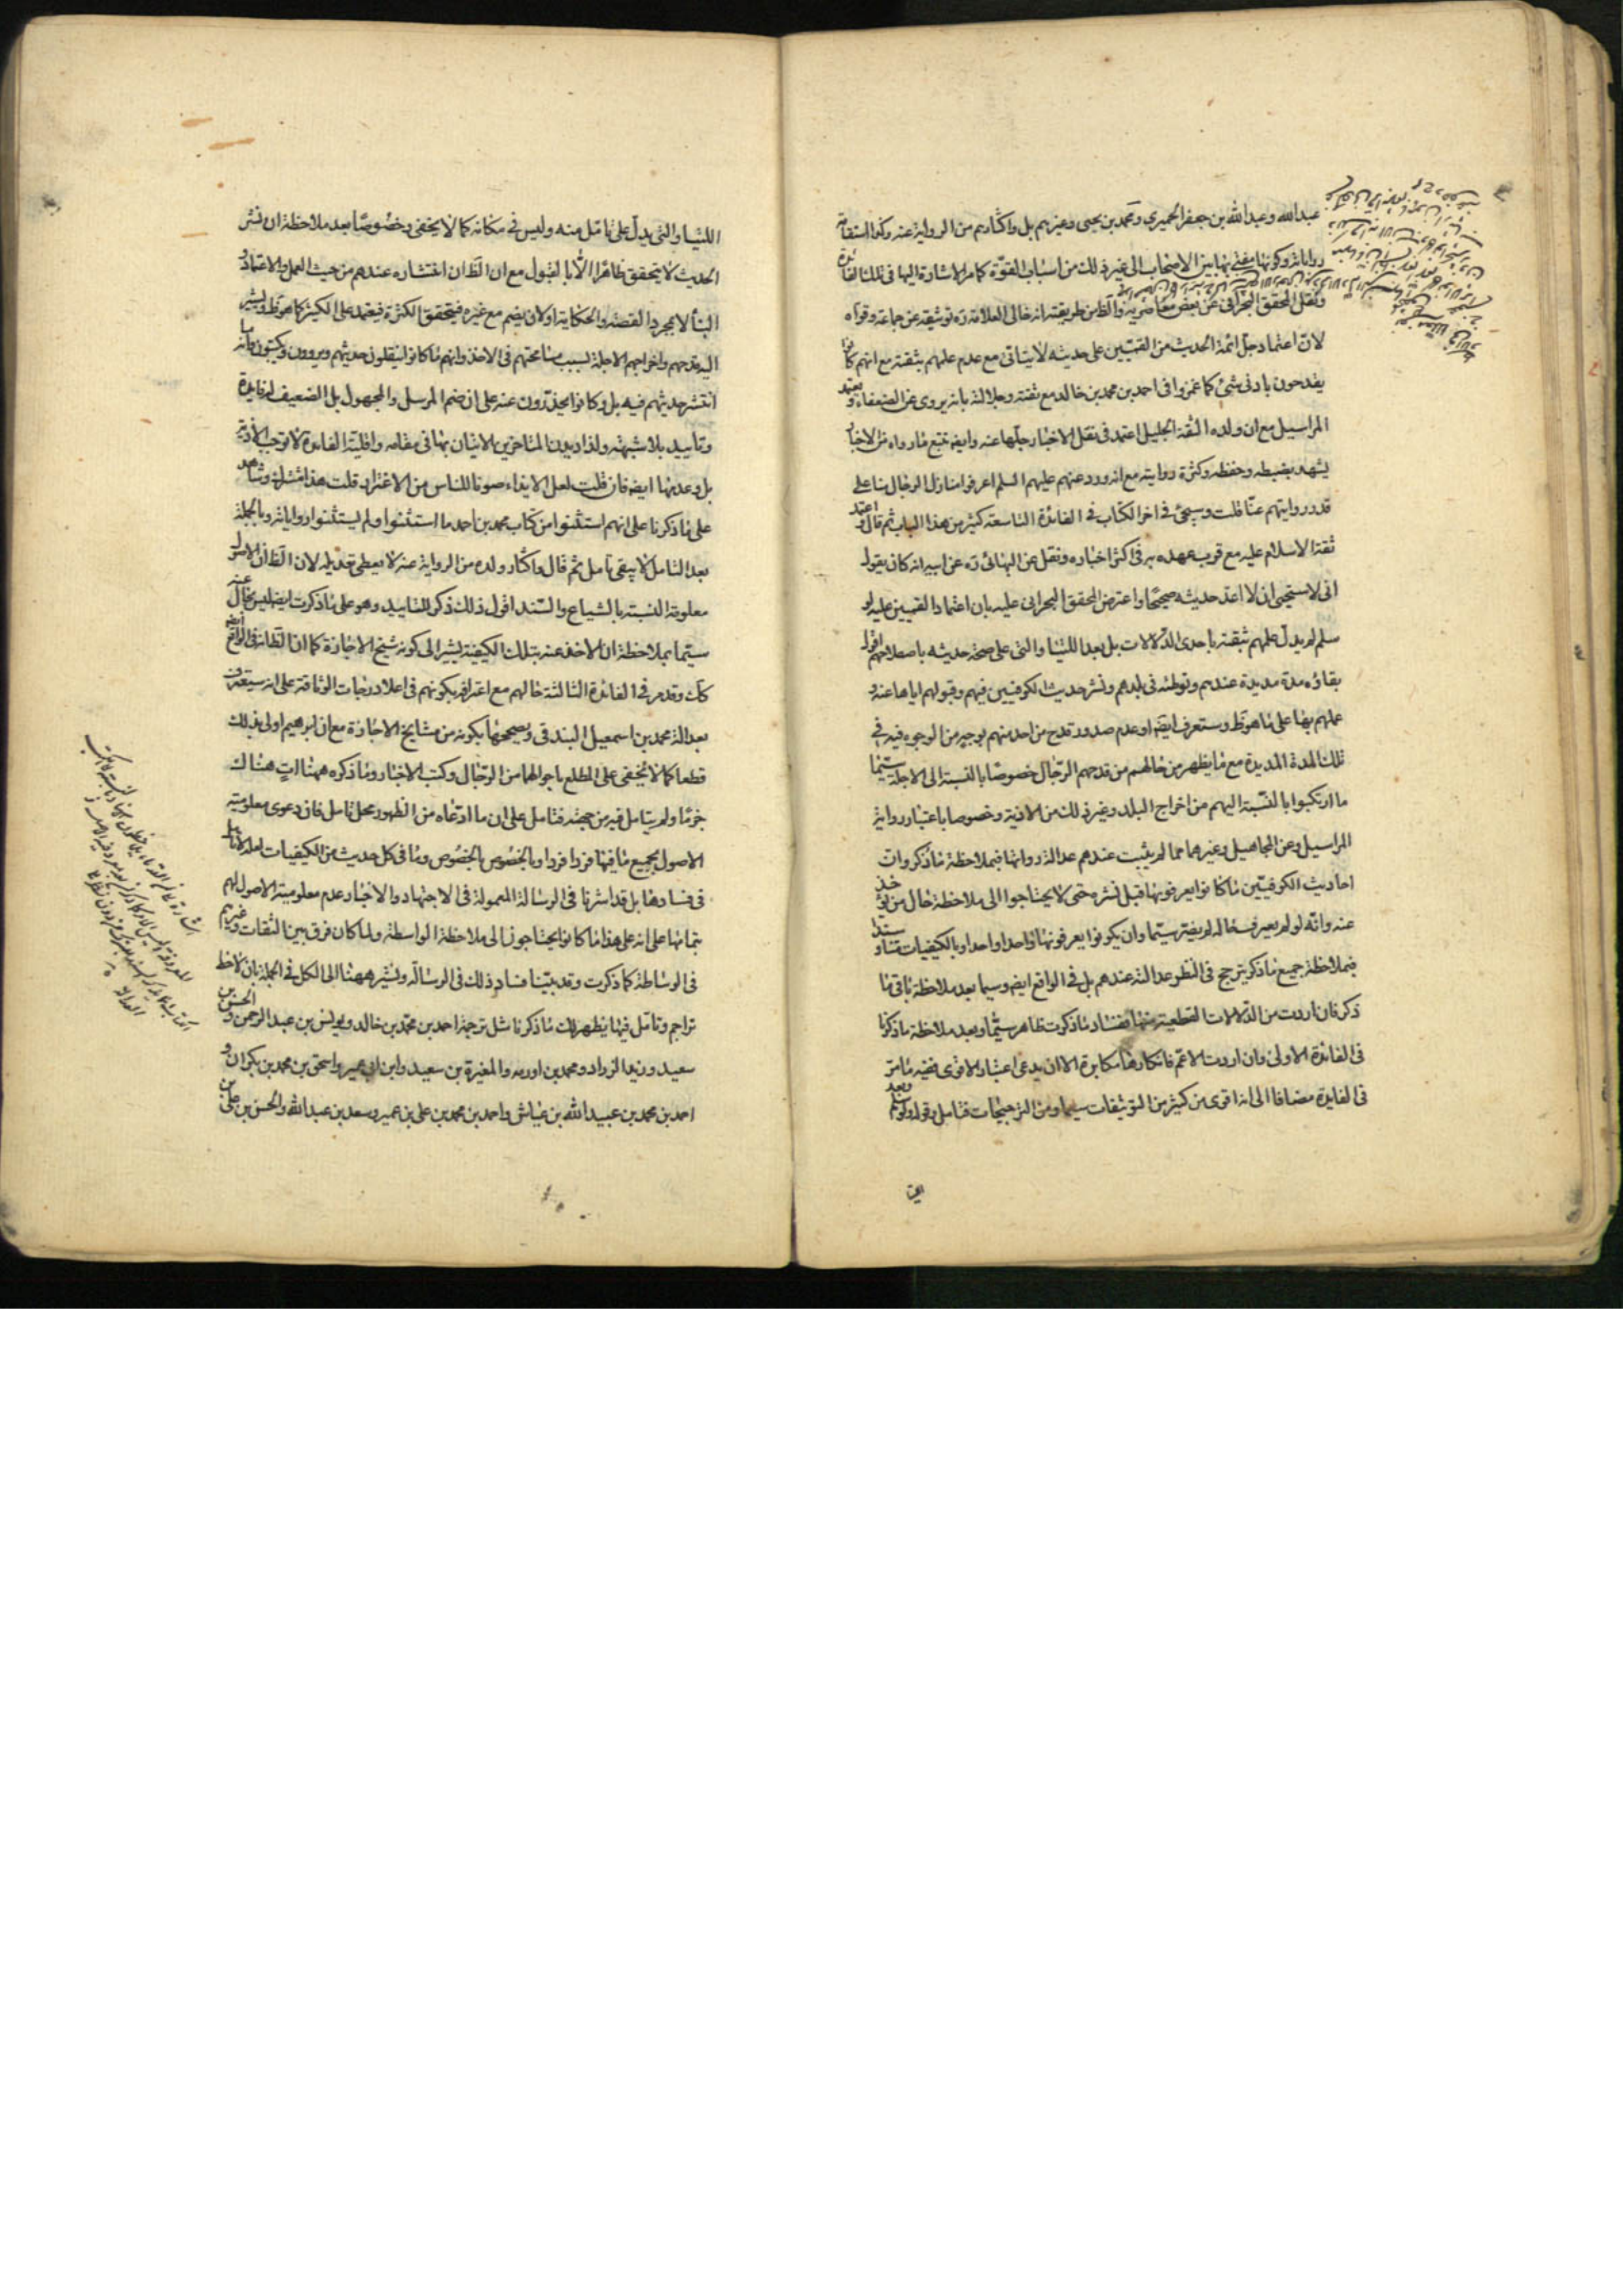 عبدالله وعبدالله بن جعفر الحميرى ومحمد بن يحيى وغيرهم بل واكثارهم من الرواية عنه وكذا استقامة
رواياته وكونها مفتى بها بين الاصحاب الى غير ذلك من اسباب القوّة كما مر الاشارة اليها فى تلك الفائدة
ونقل المحقق البحرانى عن بعض معاصريه والظ من طريقته انه خالى العلامة ره توثيقه عن جماعة وقواه
لان اعتماد جلّ ائمة الحديث من القميّين على حديثه لا يتاتى مع عدم علمهم بثقته مع انهم كانوا
يقدحون بادنى شئ كما غمزوا فى احمد بن محمد بن خالد مع ثقته وجلالته بانه يروى عن الضعفاء ويعتمد
المراسيل مع ان ولده الثقة الجليل اعتمد فى نقل الاخبار جلّها عنه وايضه تتبع ما رواه من الاخبار
يشهد بضبطه وحفظه وكثرة روايته مع انه ورد عنهم عليهم السلم اعرفوا منازل الرجال منا على
قدر روايتهم عنّا قلت وسيجئ فى اخر الكتاب فى الفائدة التاسعة كثير من هذا الباب ثم قال واعتمد
ثقة الاسلام عليه مع قرب عهده به فى اكثر اخباره ونقل عن البهائى ره عن ابيه انه كان يقول
انى لاستحيى ان لا اعد حديثه صحيحًا واعترض المحقق البحرانى عليه بان اعتماد القميين عليه لو
سلم لم يدل علمهم بثقته باحدى الدلالات بل بعد اللتيا والتى على صحة حديثه باصطلاحهم اقول
بقاؤه مدة مديدة عندهم وتوطنه فى بلدهم ونشر حديث الكوفيين فيهم وقبولهم اياها عنه و
عملهم بها على ما هو ظ وستعرف ايضه او عدم صدور قدح من احد منهم بوجه من الوجوه فيه فى
تلك المدة المديدة مع ما يظهر من حالهم من قدحهم الرجال خصوصًا بالنسبة الى الاجلة سيّما
ما ارتكبوا بالنسبة اليهم من اخراج البلد وغير ذلك من الاذية وخصوصا باعتبار رواية
المراسيل وعن المجاهيل وغيرهما مما لم يثبت عندهم عدالة رواتها فبملاحظة ما ذكر وان
احاديث الكوفيّين ما كانوا يعرفونها قبل نشره حتى لا يحتاجوا الى ملاحظة حال من تؤخذ
عنه وانه لو لم يعرف حاله لم يضر سيّما وان يكونوا يعرفونها واحدا واحدا وبالكيفيات متنا وسندا
فبملاحظة جميع ما ذكر يترجح فى النظر عدالته عندهم بل فى الواقع ايضه وسيما بعد ملاحظة باقى ما
ذكر فان اردت من الدلالات القطعية منها ففساد ما ذكرت ظاهر سيّما وبعد ملاحظة ما ذكرنا
فى الفائدة الاولى وان اردت الاعم فانكارها مكابرة الا ان يدعى اعتبار الاقوى ففيه ما مرّ
فى الفايدة مضافا الى انه اقوى من كثير من التوثيقات سيما ومن الترجيحات فتامل وقوله ولو سلم وبعد
اللتيا والتى يدلّ على تامّل منه وليس فى مكانه كما لا يخفى وخصوصًا بعد ملاحظة ان نشر
الحديث لا يتحقق ظاهرا الا بالقبول مع ان الظ ان انتشاره عندهم من حيث العمل والاعتماد و
البنأ لا بمجرد القصة والحكاية او لان يضم مع غيره فيتحقق الكثرة فيعتمد على الكثير كما هو ظ ويشير
اليه قدحهم واخراجهم الاجلة بسبب مسامحتهم فى الاخذ وانهم ما كانوا ينقلون حديثهم ويروون ويكتبون وانه ما
انتشر حديثهم فيه بل وكانوا يحذّرون عنه على ان ضم المرسل والمجهول بل الضعيف له فايدة
وتاييد بلا شبهة ولذا ديدن المتاخرين الاتيان بها فى مقامه واقلية الفائدة لا توجب الاذية
بل وعدمها ايضه فان قلت لعل الايذاء صونا للناس من الاغترار قلت هذا مشترك وشاهد
على ما ذكرنا على انهم استثنوا من كتاب محمد بن احمد ما استثنوا ولم يستثنوا رواياته وبالجملة
بعد التامل لا يبقى تامل ثم قال واكثار ولده من الرواية عنه لا يعطى تعديله لان الظ ان الاصول
معلومة النسبة بالشياع والسند اقول ذلك ذكر للتاييد وهو على ما ذكرت ايضه ليس بخال عنه
سيّما بملاحظة ان الاخذ عنه بتلك الكيفية يشير الى كونه شيخ الاجازة كما ان الظ انه فى الواقع ايضه
كك وقد مر فى الفائدة الثالثة حالهم مع اعترافه بكونهم فى اعلا درجات الوثاقة على انه سيعترف
بعدالة محمد بن اسمعيل البندقى ويصححونها بكونه من مشايخ الاجازة مع ان ابرهيم اولى بذلك
قطعا كما لا يخفى على المطلع باحوالهما من الرجال وكتب الاخبار وما ذكره ههنا اتٍ هناك
جزمًا ولم يتامل فيه من جهته فتامل على ان ما ادّعاه من الظهور محل تامل فان دعوى معلومية
الاصول بجميع ما فيها فردا فردا وبالخصوص بالخصوص وما فى كل حديث من الكيفيات لعله لا تامل
فى فسادها بل قد اشرنا فى الرسالة المعمولة فى الاجتهاد والاخبار عدم معلومية الاصول لهم
بتمامها على انه على هذا ما كانوا يحتاجون الى ملاحظة الواسطة ولما كان فرق بين الثقات وغيرهم
فى الوساطة كما ذكرت وقد بيّنا فساد ذلك فى الرسالة ونشير ههنا الى الكل فى الجملة بان لاحظ
تراجم وتامّل فيها يظهر لك ما ذكرنا مثل ترجمة احمد بن محمد بن خالد ويونس بن عبد الرحمن والحسين بن
سعيد وزيد الزراد ومحمد بن اورمه والمغيرة بن سعيد وابن ابى عمير واسحق بن محمد بن بكران و
احمد بن محمد بن عبيد الله بن عياش واحمد بن محمد بن على بن عمير وسعد بن عبد الله والحسن بن على بن